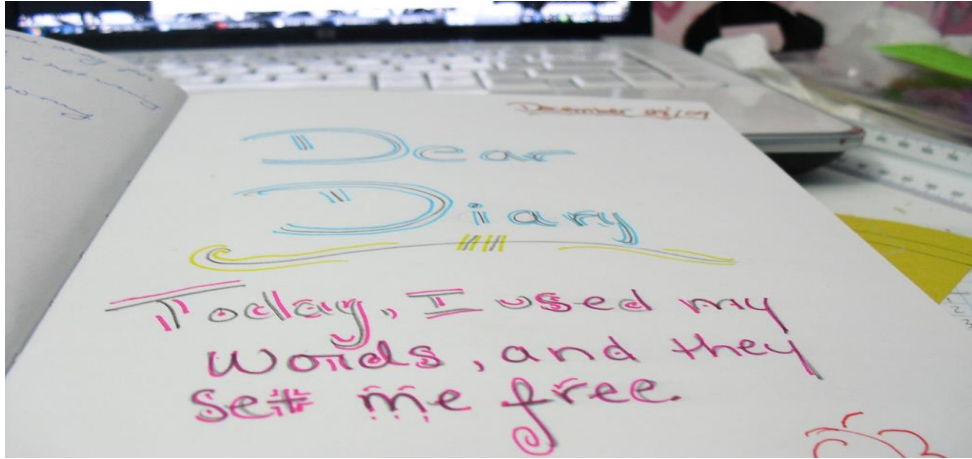 December 09/09
Dear
Diary
Today, I used my
words, and they
set me free.